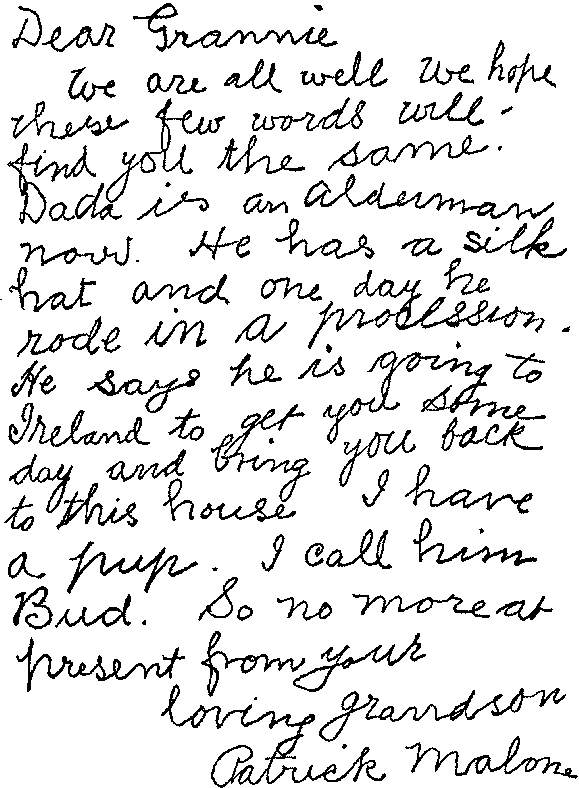 Dear Grannie
We are all well We hope
these few words will
find you the same.
Dada is an Alderman
now. He has a silk
hat and one day he
rode in a procession.
He says he is going to
Ireland to get you some
day and bring you back
to this house I have
a pup. I call him
Bud. So no more at
present from your
loving grandson
Patrick Malone